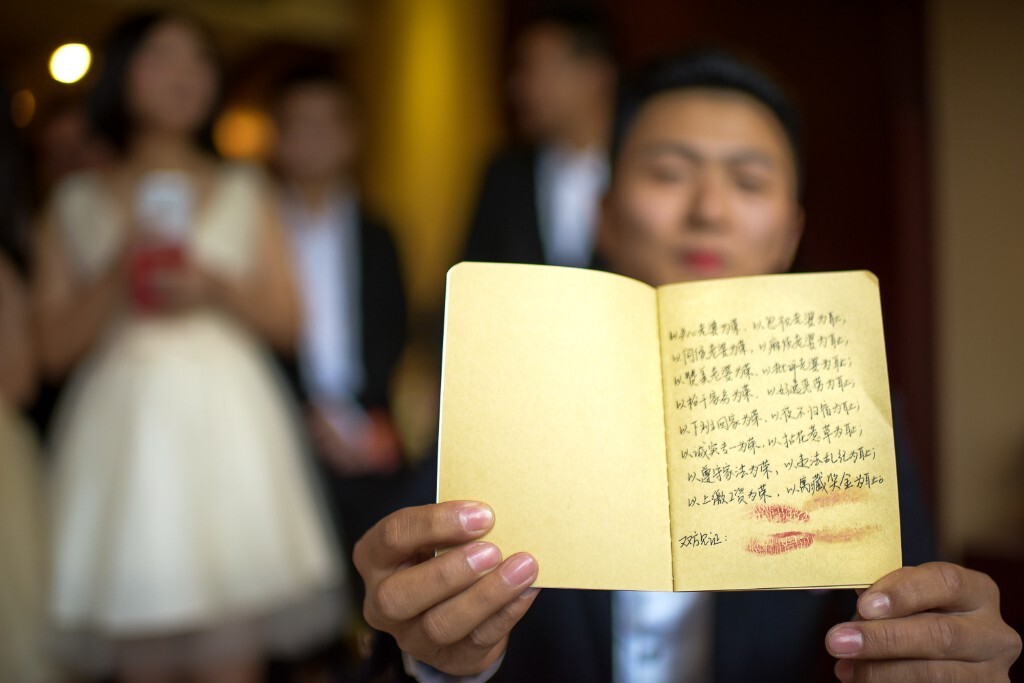 以关心老婆为荣、以忽视老婆为耻；
以同情老婆为荣、以麻烦老婆为耻；
以赞美老婆为荣、以批评老婆为耻；
以抢干家务为荣、以好逸恶劳为耻；
以下到点回家为荣、以夜不归宿为耻；
以诚实专一为荣、以拈花惹草为耻；
以遵守家法为荣，以违法乱纪为耻；
以上缴工资为荣，以隐藏奖金为耻。
双方见证：